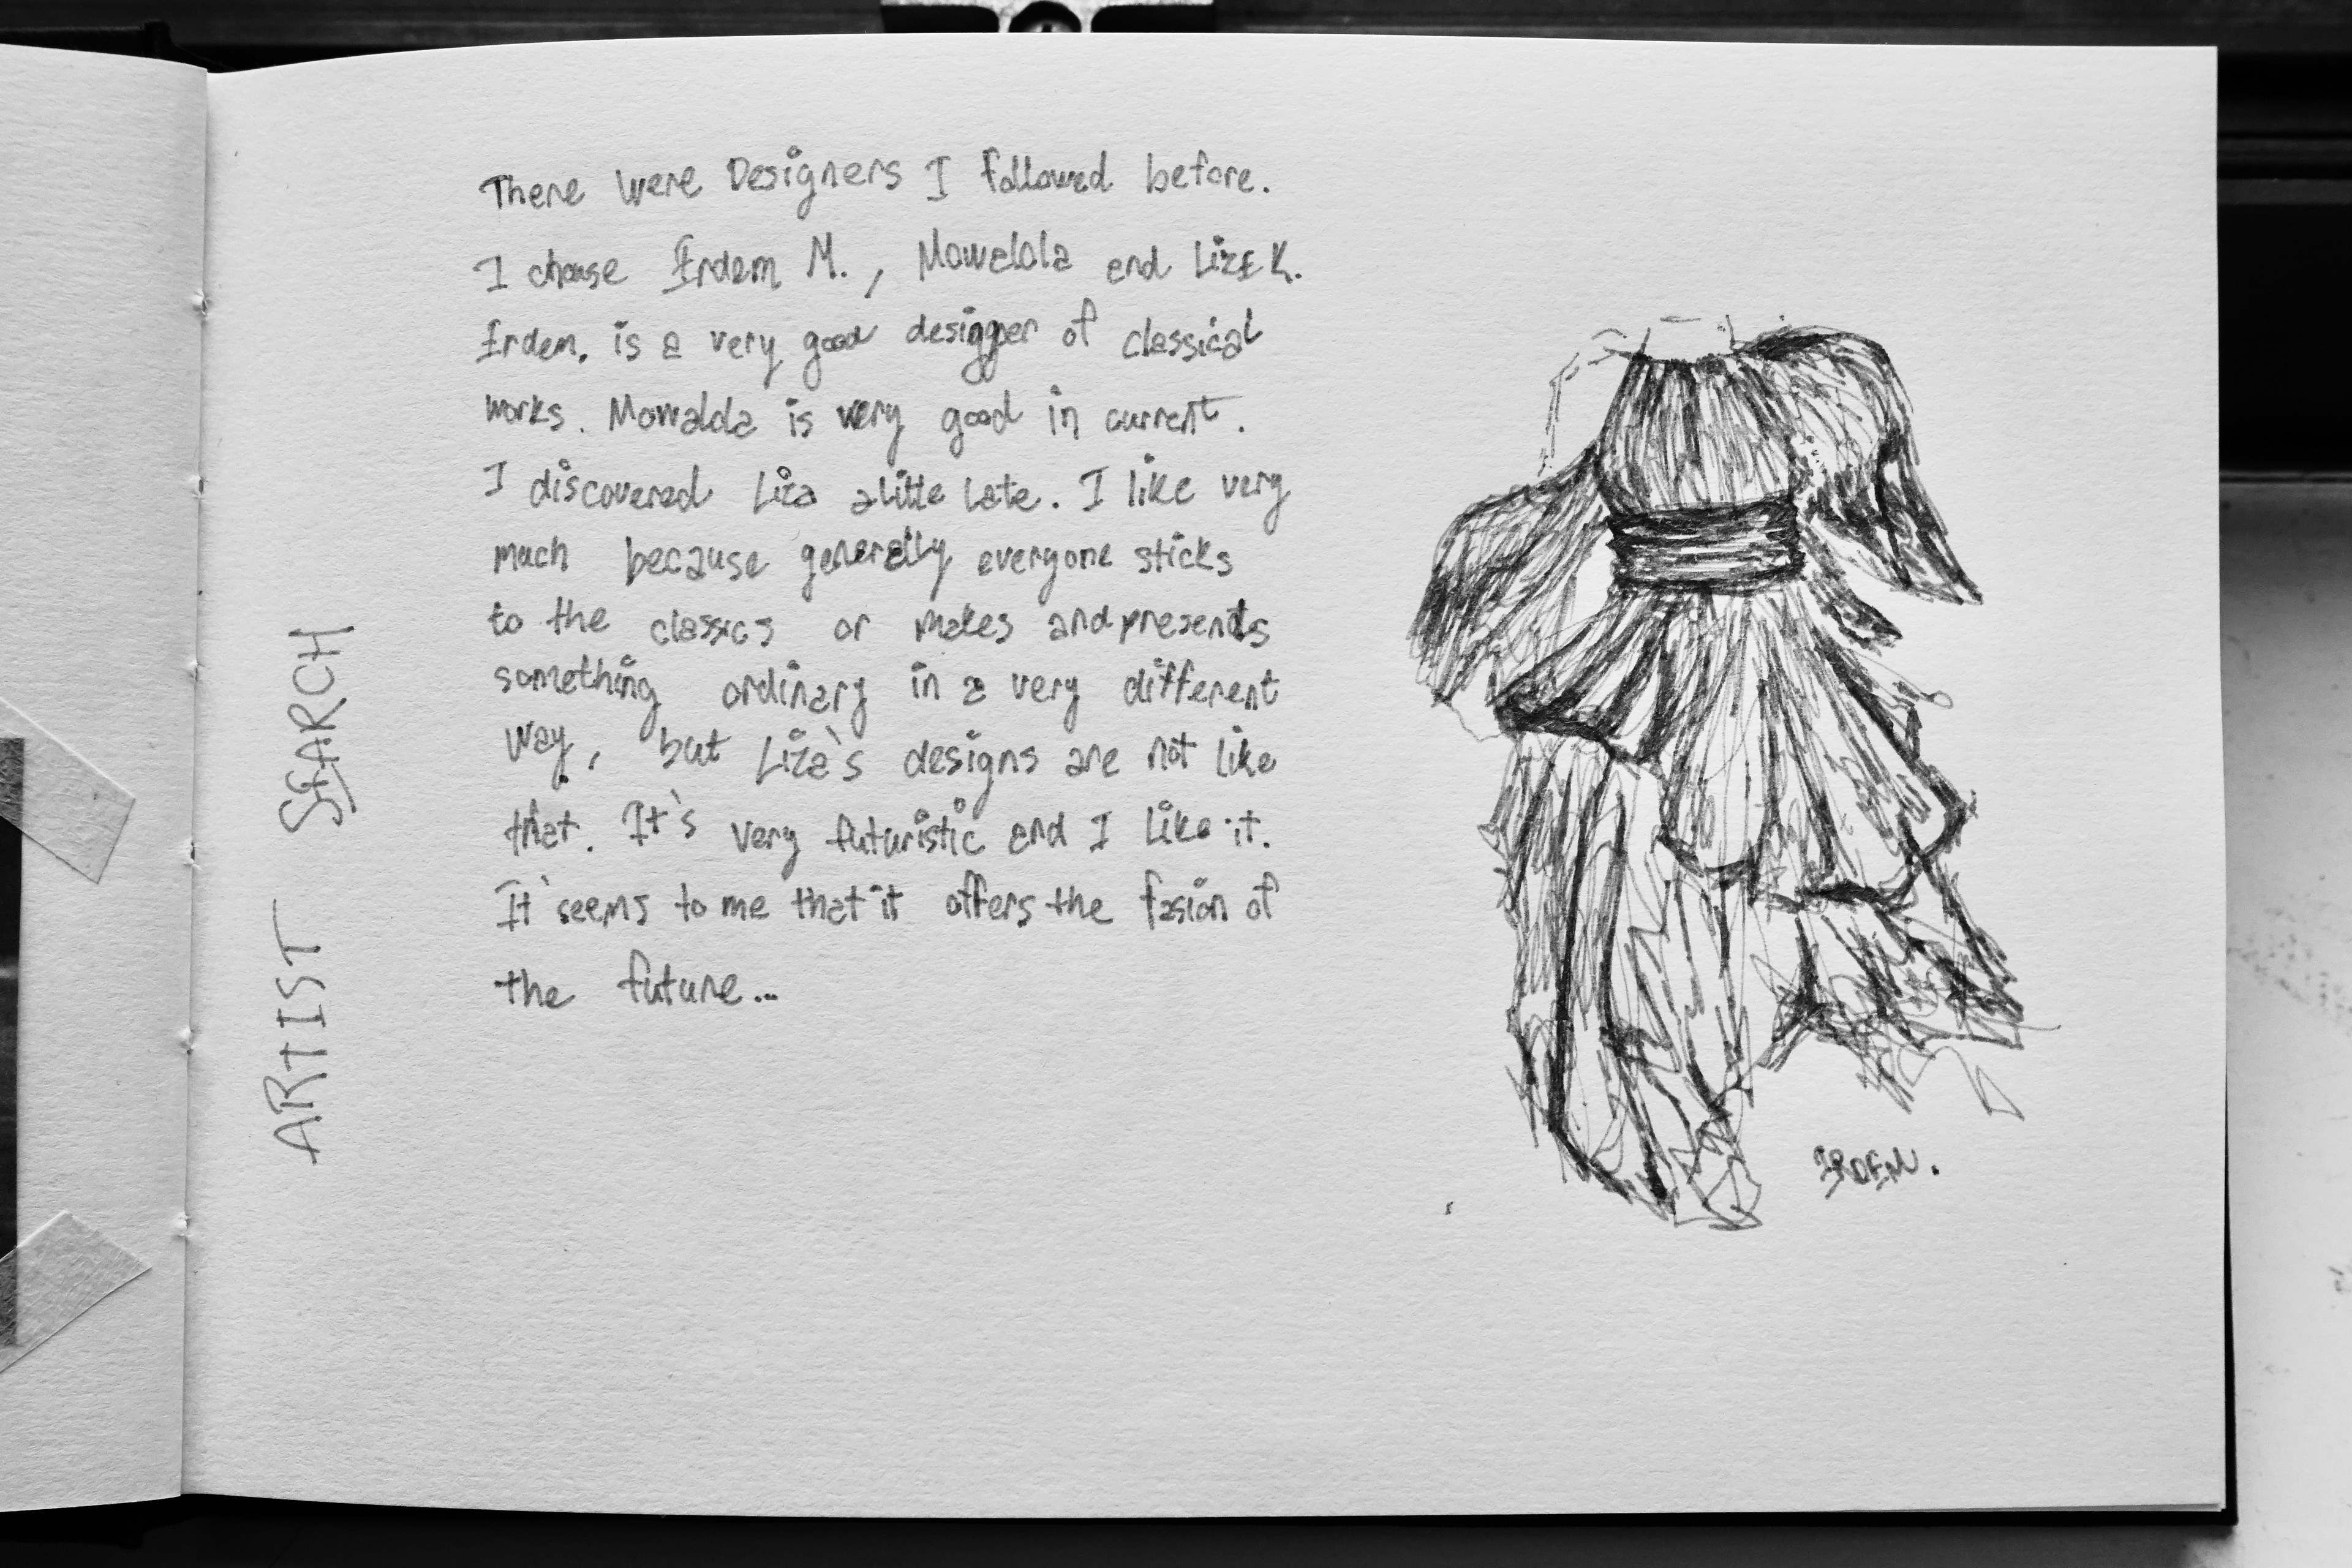 ARTIST SEARCH
There were Designers I followed before.
I chouse Erdem M., Mowalola and Liza K.
Erdem. is a very good designer of classical
works. Mowalola is very good in current.
I discovered Liza a little late. I like very
much because generally everyone sticks
to the classics or makes and presents
something ordinary in a very different
way, but Liza's designs are not like
that. It's very futuristic and I like it.
It seems to me that it offers the fasion of
the future...
ERDEM.